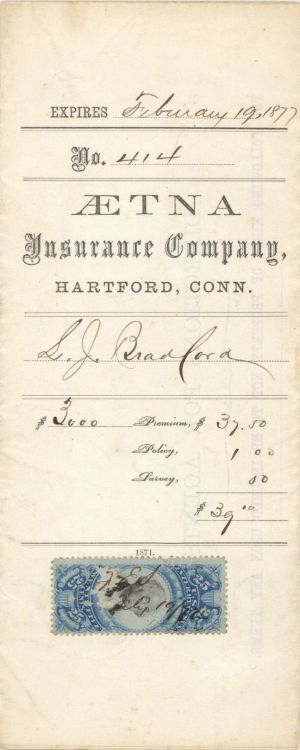 EXPIRES February 19, 1877
No. 414
ÆTNA
Insurance Company,
HARTFORD, CONN.
L. J. Bradford
$ 3000 Premium, $ 37.50
Policy, 1 00
Survey, 50
$ 39 00
1871.
25 25